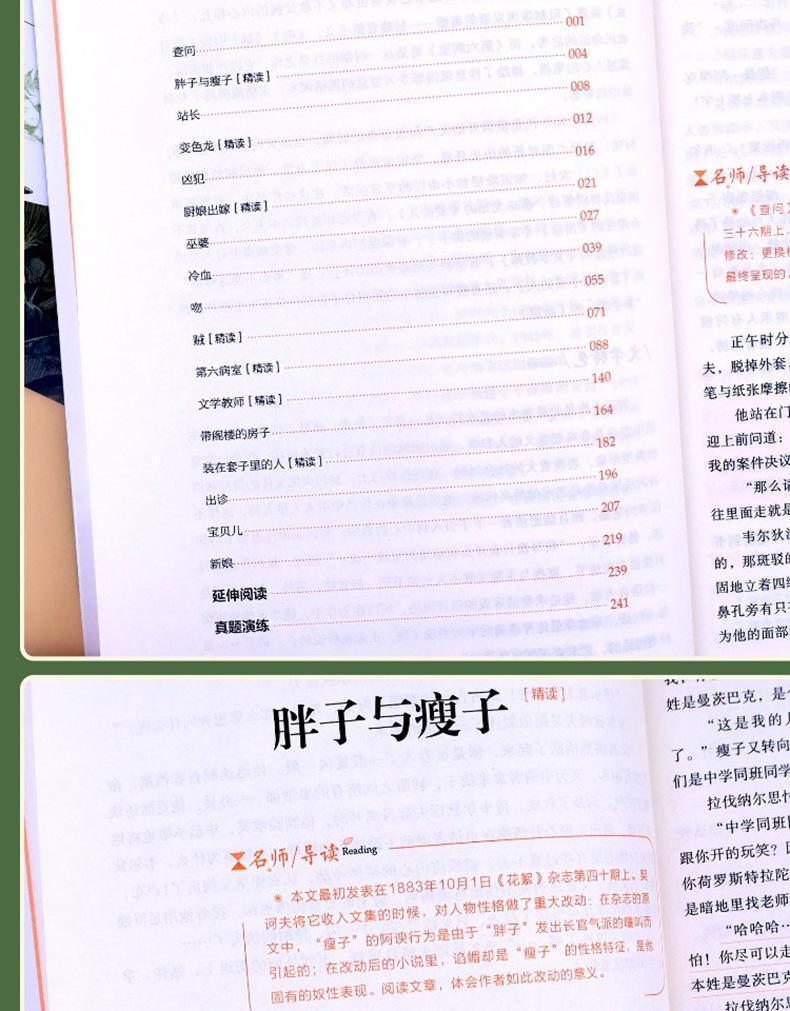 查问 001
胖子与瘦子[精读] 004
站长 008
变色龙[精读] 012
凶犯 016
厨娘出嫁[精读] 021
巫婆 027
冷血 039
吻 055
贼[精读] 071
第六病室[精读] 088
文学教师[精读] 140
带阁楼的房子 164
装在套子里的人[精读] 182
出诊 196
宝贝儿 207
新娘 219
延伸阅读 239
真题演练 241
名师/导读
*《查问》
三十六期上
修改：更换
最终呈现的
正午时分
夫，脱掉外套
笔与纸张摩擦
他站在门
迎上前问道：
我的案件决议
“那么请
往里面走就是
韦尔狄
的，那斑驳的
固地立着四
鼻孔旁有只
为他的面部
胖子与瘦子[精读]
名师/导读 Reading
*本文最初发表在1883年10月1日《花絮》杂志第四十期上。契
诃夫将它收入文集的时候，对人物性格做了重大改动：在杂志的原
文中，“瘦子”的阿谀行为是由于“胖子”发出长官气派的嚷叫而
引起的；在改动后的小说里，谄媚却是“瘦子”的性格特征，是他
固有的奴性表现。阅读文章，体会作者如此改动的意义。
姓是曼茨巴克，是
“这是我的儿
了。”瘦子又转向
们是中学同班同学
拉伐纳尔思忖
“中学同班同
跟你开的玩笑？
你荷罗斯特拉陀
是暗地里找老师
“哈哈哈…
怕！你尽可以走
本姓是曼茨巴克
拉伐纳尔